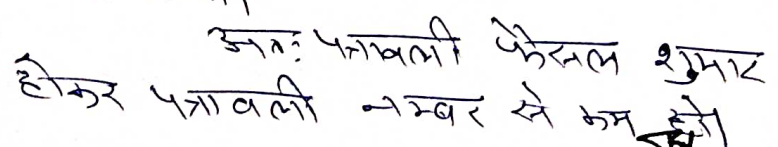 अतः पत्रावली फैसल शुमार
होकर पत्रावली नम्बर से कम हो।